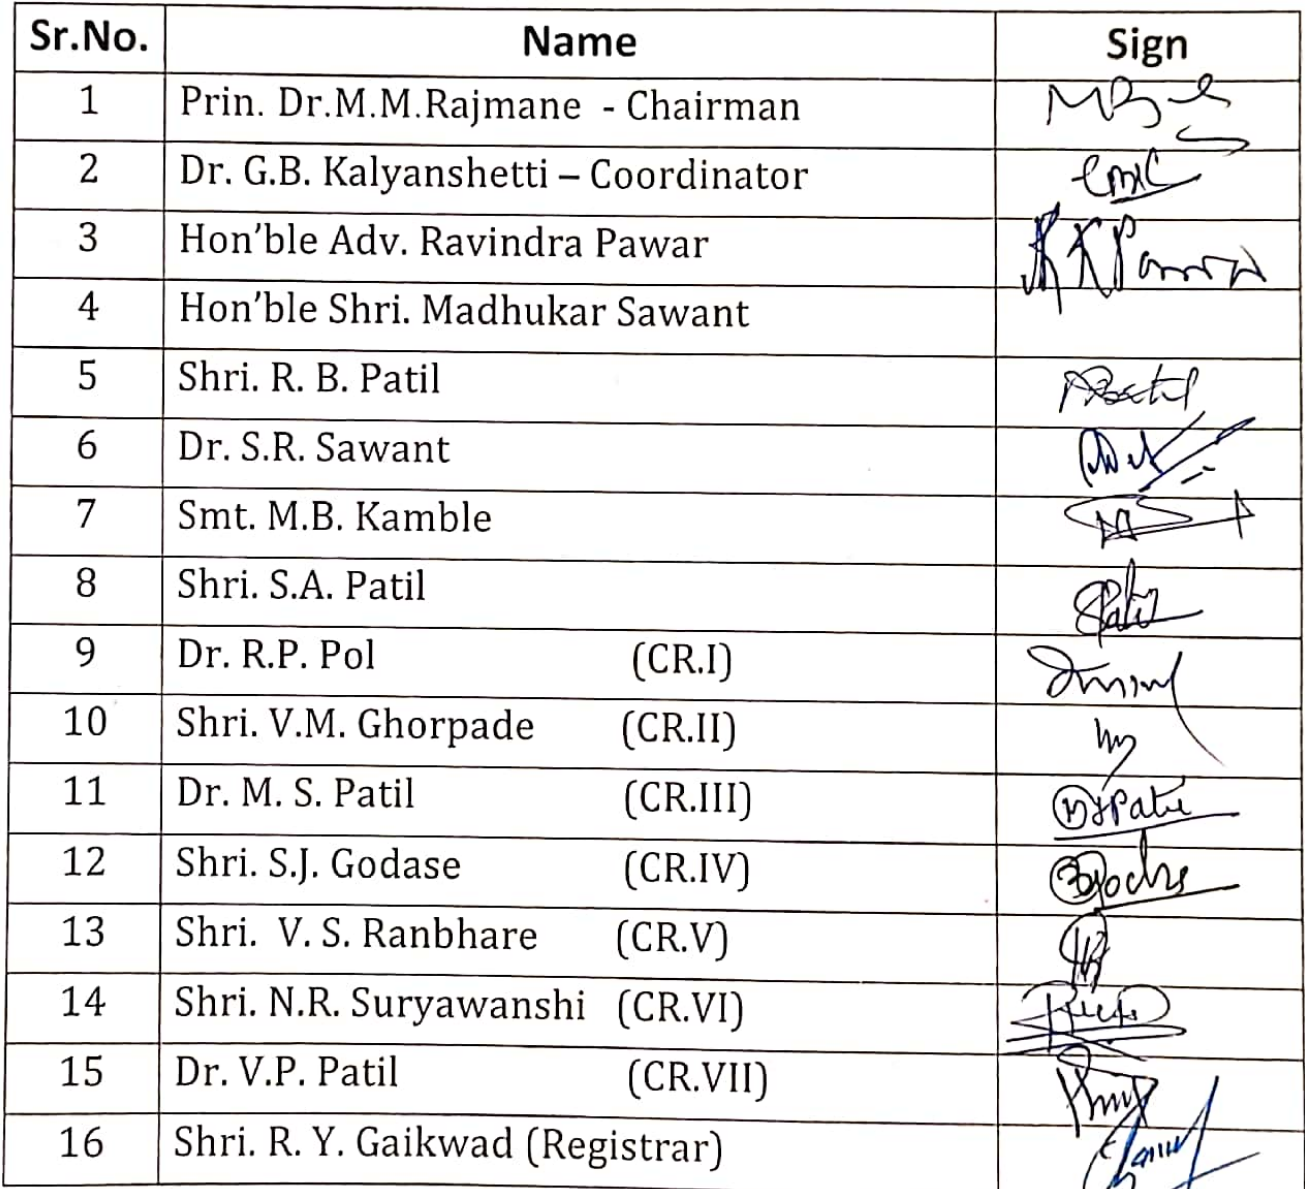 Sr.No. Name Sign
1 Prin. Dr.M.M.Rajmane - Chairman
2 Dr. G.B. Kalyanshetti – Coordinator
3 Hon'ble Adv. Ravindra Pawar
4 Hon'ble Shri. Madhukar Sawant
5 Shri. R. B. Patil
6 Dr. S.R. Sawant
7 Smt. M.B. Kamble
8 Shri. S.A. Patil
9 Dr. R.P. Pol (CR.I)
10 Shri. V.M. Ghorpade (CR.II)
11 Dr. M. S. Patil (CR.III)
12 Shri. S.J. Godase (CR.IV)
13 Shri. V. S. Ranbhare (CR.V)
14 Shri. N.R. Suryawanshi (CR.VI)
15 Dr. V.P. Patil (CR.VII)
16 Shri. R. Y. Gaikwad (Registrar)